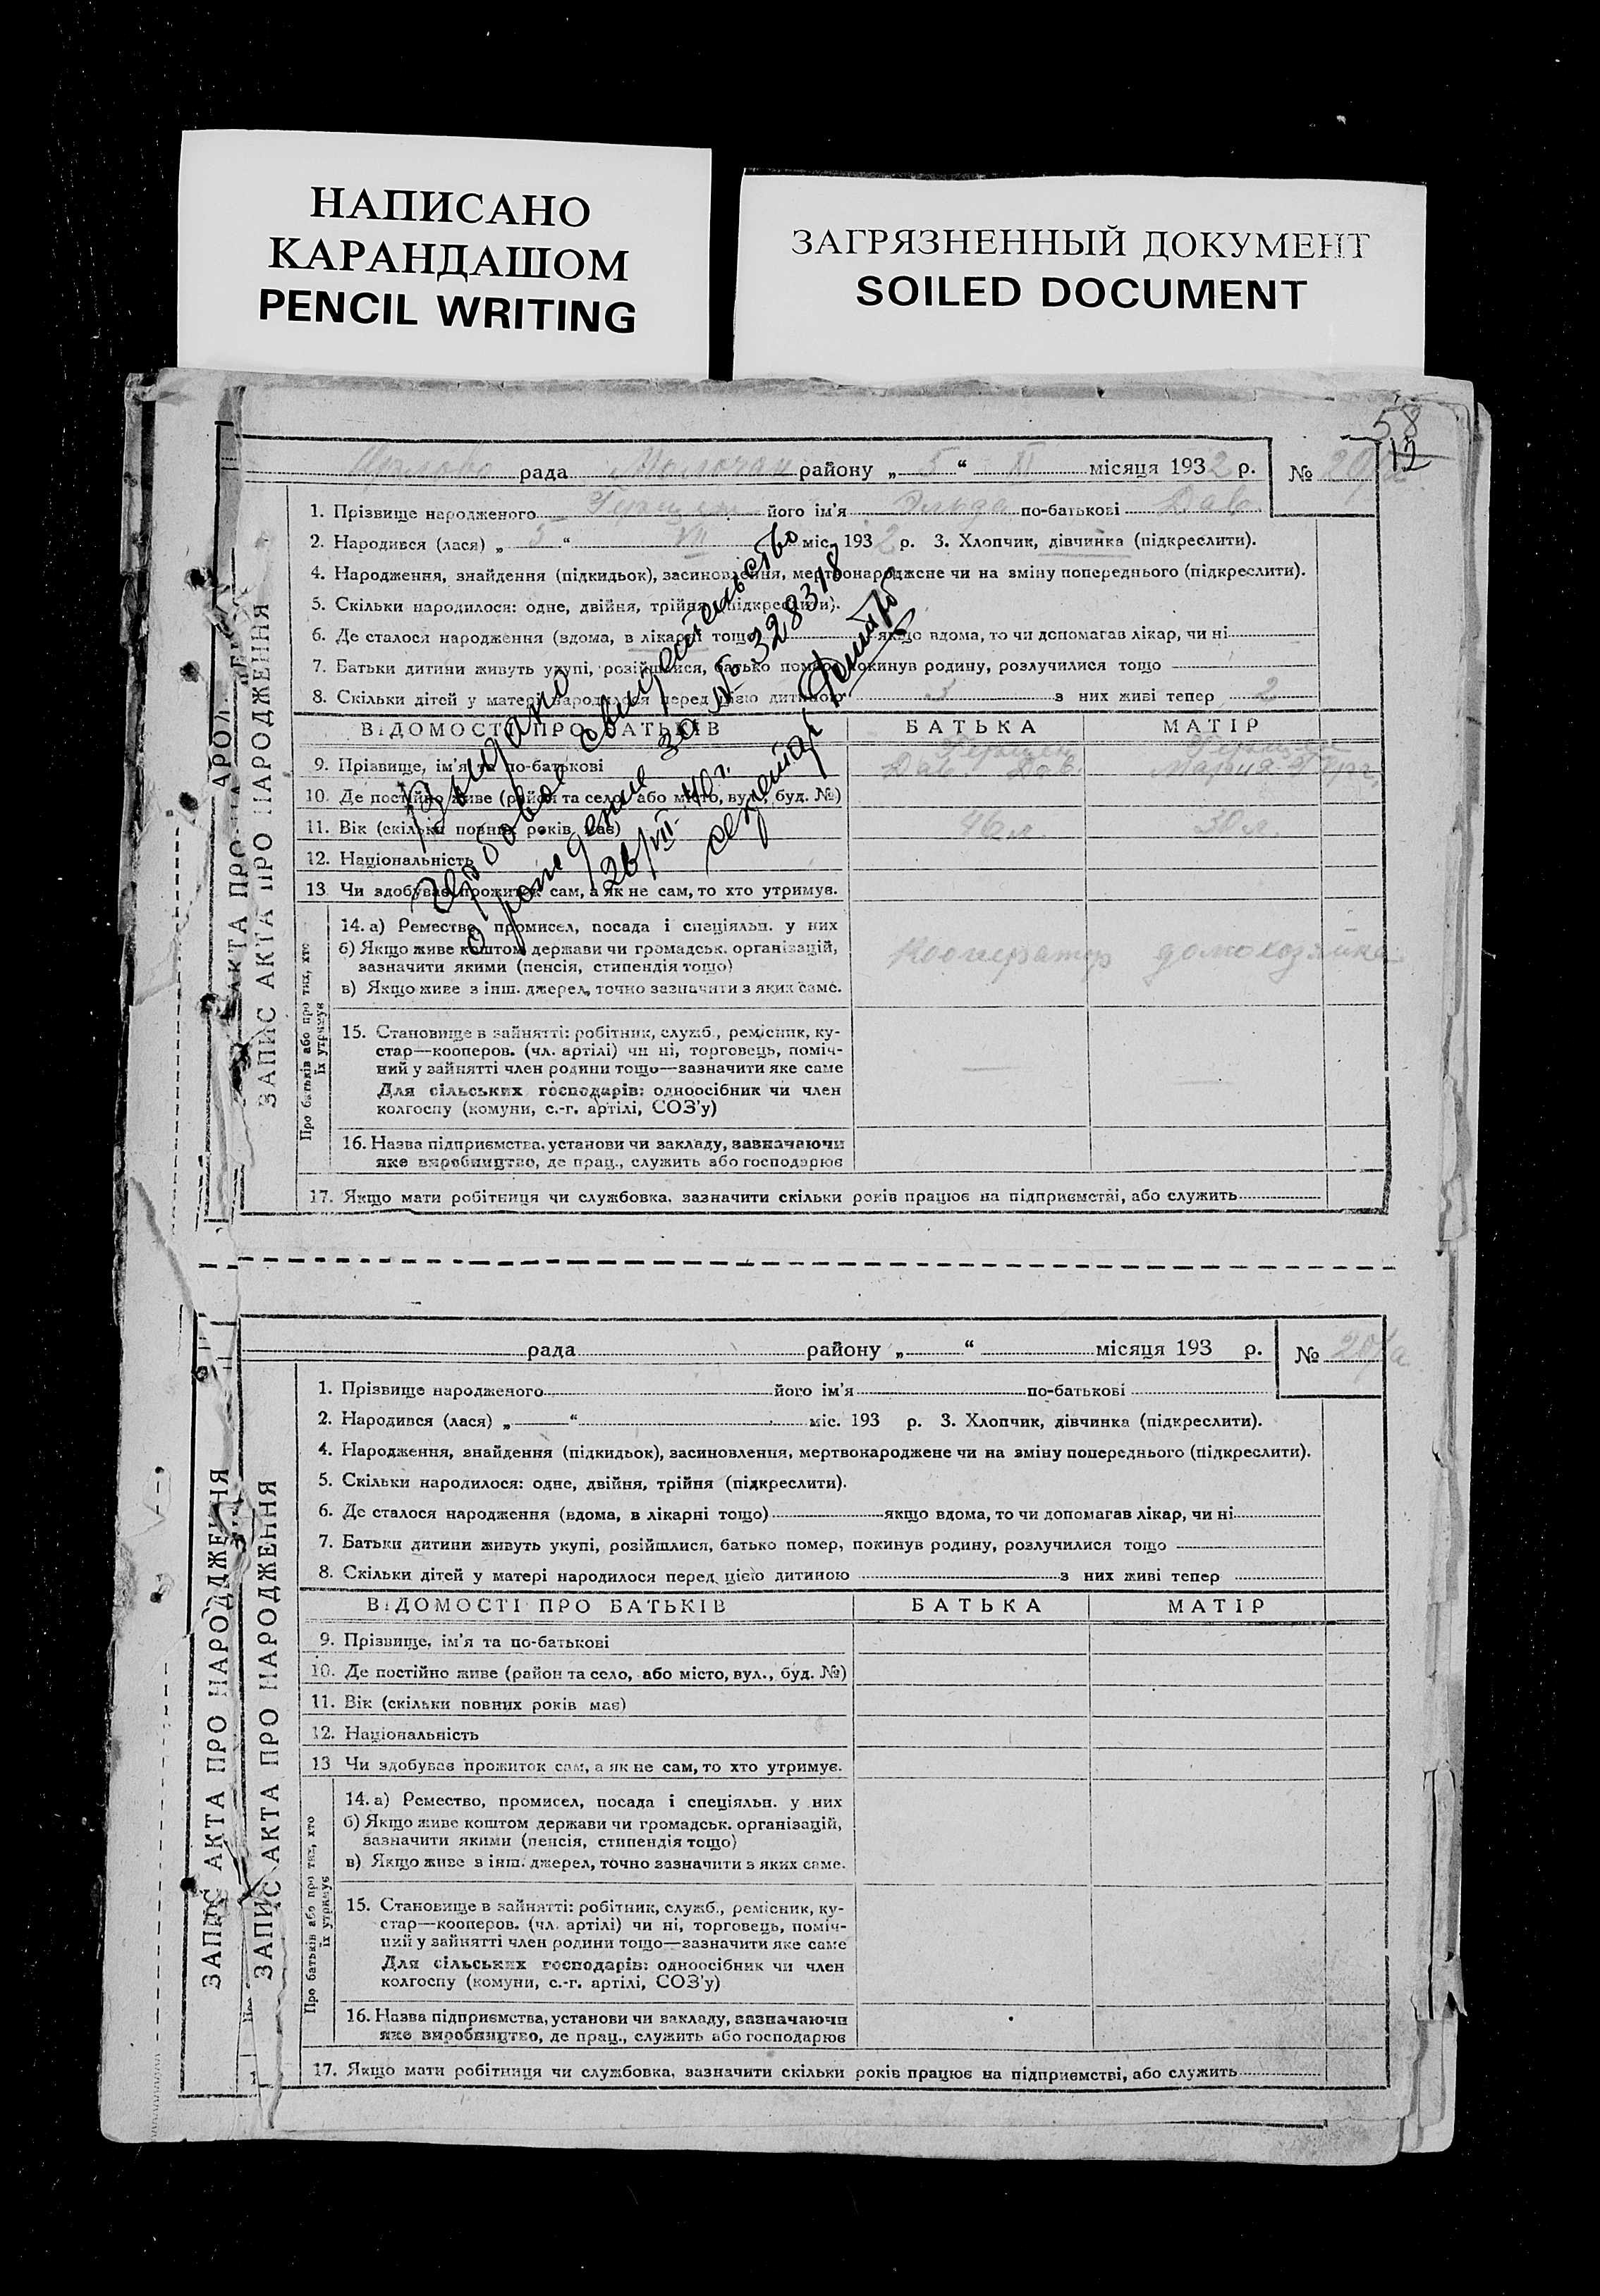 НАПИСАНО
КАРАНДАШОМ
PENCIL WRITING
ЗАГРЯЗНЕННЫЙ ДОКУМЕНТ
SOILED DOCUMENT
58
12
рада Молочан району „ 5 “ XI місяця 1932 р. №
1. Прізвище народженого його ім'я Эльза по-батькові Дав
2. Народився (лася) „ 5 “ VII міс. 1932 р. 3. Хлопчик, дівчинка (підкреслити).
4. Народження, знайдення (підкидьок), засиновлення, мертвонароджене чи на зміну попереднього (підкреслити).
5. Скільки народилося: одне, двійня, трійня (підкреслити).
6. Де сталося народження (вдома, в лікарні тощо) якщо вдома, то чи допомагав лікар, чи ні
7. Батьки дитини живуть укупі, розійшлися, батько помер, покинув родину, розлучилися тощо
8. Скільки дітей у матері народилося перед цією дитиною 3 з них живі тепер 2
ВІДОМОСТІ ПРО БАТЬКІВ БАТЬКА МАТІР
9. Прізвище, ім'я та по-батькові Дав. Дав. Мария
10. Де постійно живе (район та село, або місто, вул., буд. №)
11. Вік (скільки повних років має) 46 л. 30 л.
12. Національність
13 Чи здобуває прожиток сам, а як не сам, то хто утримує.
Про батьків або про тих, хто їх утримує
14. а) Ремество, промисел, посада і спеціяльн. у них
б) Якщо живе коштом держави чи громадськ. організацій,
зазначити якими (пенсія, стипендія тощо)
в) Якщо живе з інш. джерел, точно зазначити з яких саме.
Кооператор домохозяйка
15. Становище в зайнятті: робітник, служб., ремісник, ку-
стар—кооперов. (чл. артілі) чи ні, торговець, поміч-
ний у зайнятті член родини тощо—зазначити яке саме
Для сільських господарів: одноосібник чи член
колгоспу (комуни, с.-г. артілі, СОЗ'у)
16. Назва підприємства, установи чи закладу, зазначаючи
яке виробництво, де прац., служить або господарює
17. Якщо мати робітниця чи службовка, зазначити скільки років працює на підприємстві, або служить
ЗАПИС АКТА ПРО НАРОДЖЕННЯ
Выдано
гербовое свидетельство
о рождении за № 328318
26/VII-40 г.
рада району „ “ місяця 193 р. №
1. Прізвище народженого його ім'я по-батькові
2. Народився (лася) „ “ міс. 193 р. 3. Хлопчик, дівчинка (підкреслити).
4. Народження, знайдення (підкидьок), засиновлення, мертвонароджене чи на зміну попереднього (підкреслити).
5. Скільки народилося: одне, двійня, трійня (підкреслити).
6. Де сталося народження (вдома, в лікарні тощо) якщо вдома, то чи допомагав лікар, чи ні
7. Батьки дитини живуть укупі, розійшлися, батько помер, покинув родину, розлучилися тощо
8. Скільки дітей у матері народилося перед цією дитиною з них живі тепер
ВІДОМОСТІ ПРО БАТЬКІВ БАТЬКА МАТІР
9. Прізвище, ім'я та по-батькові
10. Де постійно живе (район та село, або місто, вул., буд. №)
11. Вік (скільки повних років має)
12. Національність
13 Чи здобуває прожиток сам, а як не сам, то хто утримує.
Про батьків або про тих, хто їх утримує
14. а) Ремество, промисел, посада і спеціяльн. у них
б) Якщо живе коштом держави чи громадськ. організацій,
зазначити якими (пенсія, стипендія тощо)
в) Якщо живе з інш. джерел, точно зазначити з яких саме.
15. Становище в зайнятті: робітник, служб., ремісник, ку-
стар—кооперов. (чл. артілі) чи ні, торговець, поміч-
ний у зайнятті член родини тощо—зазначити яке саме
Для сільських господарів: одноосібник чи член
колгоспу (комуни, с.-г. артілі, СОЗ'у)
16. Назва підприємства, установи чи закладу, зазначаючи
яке виробництво, де прац., служить або господарює
17. Якщо мати робітниця чи службовка, зазначити скільки років працює на підприємстві, або служить
ЗАПИС АКТА ПРО НАРОДЖЕННЯ
ЗАПИС АКТА ПРО НАРОДЖЕННЯ